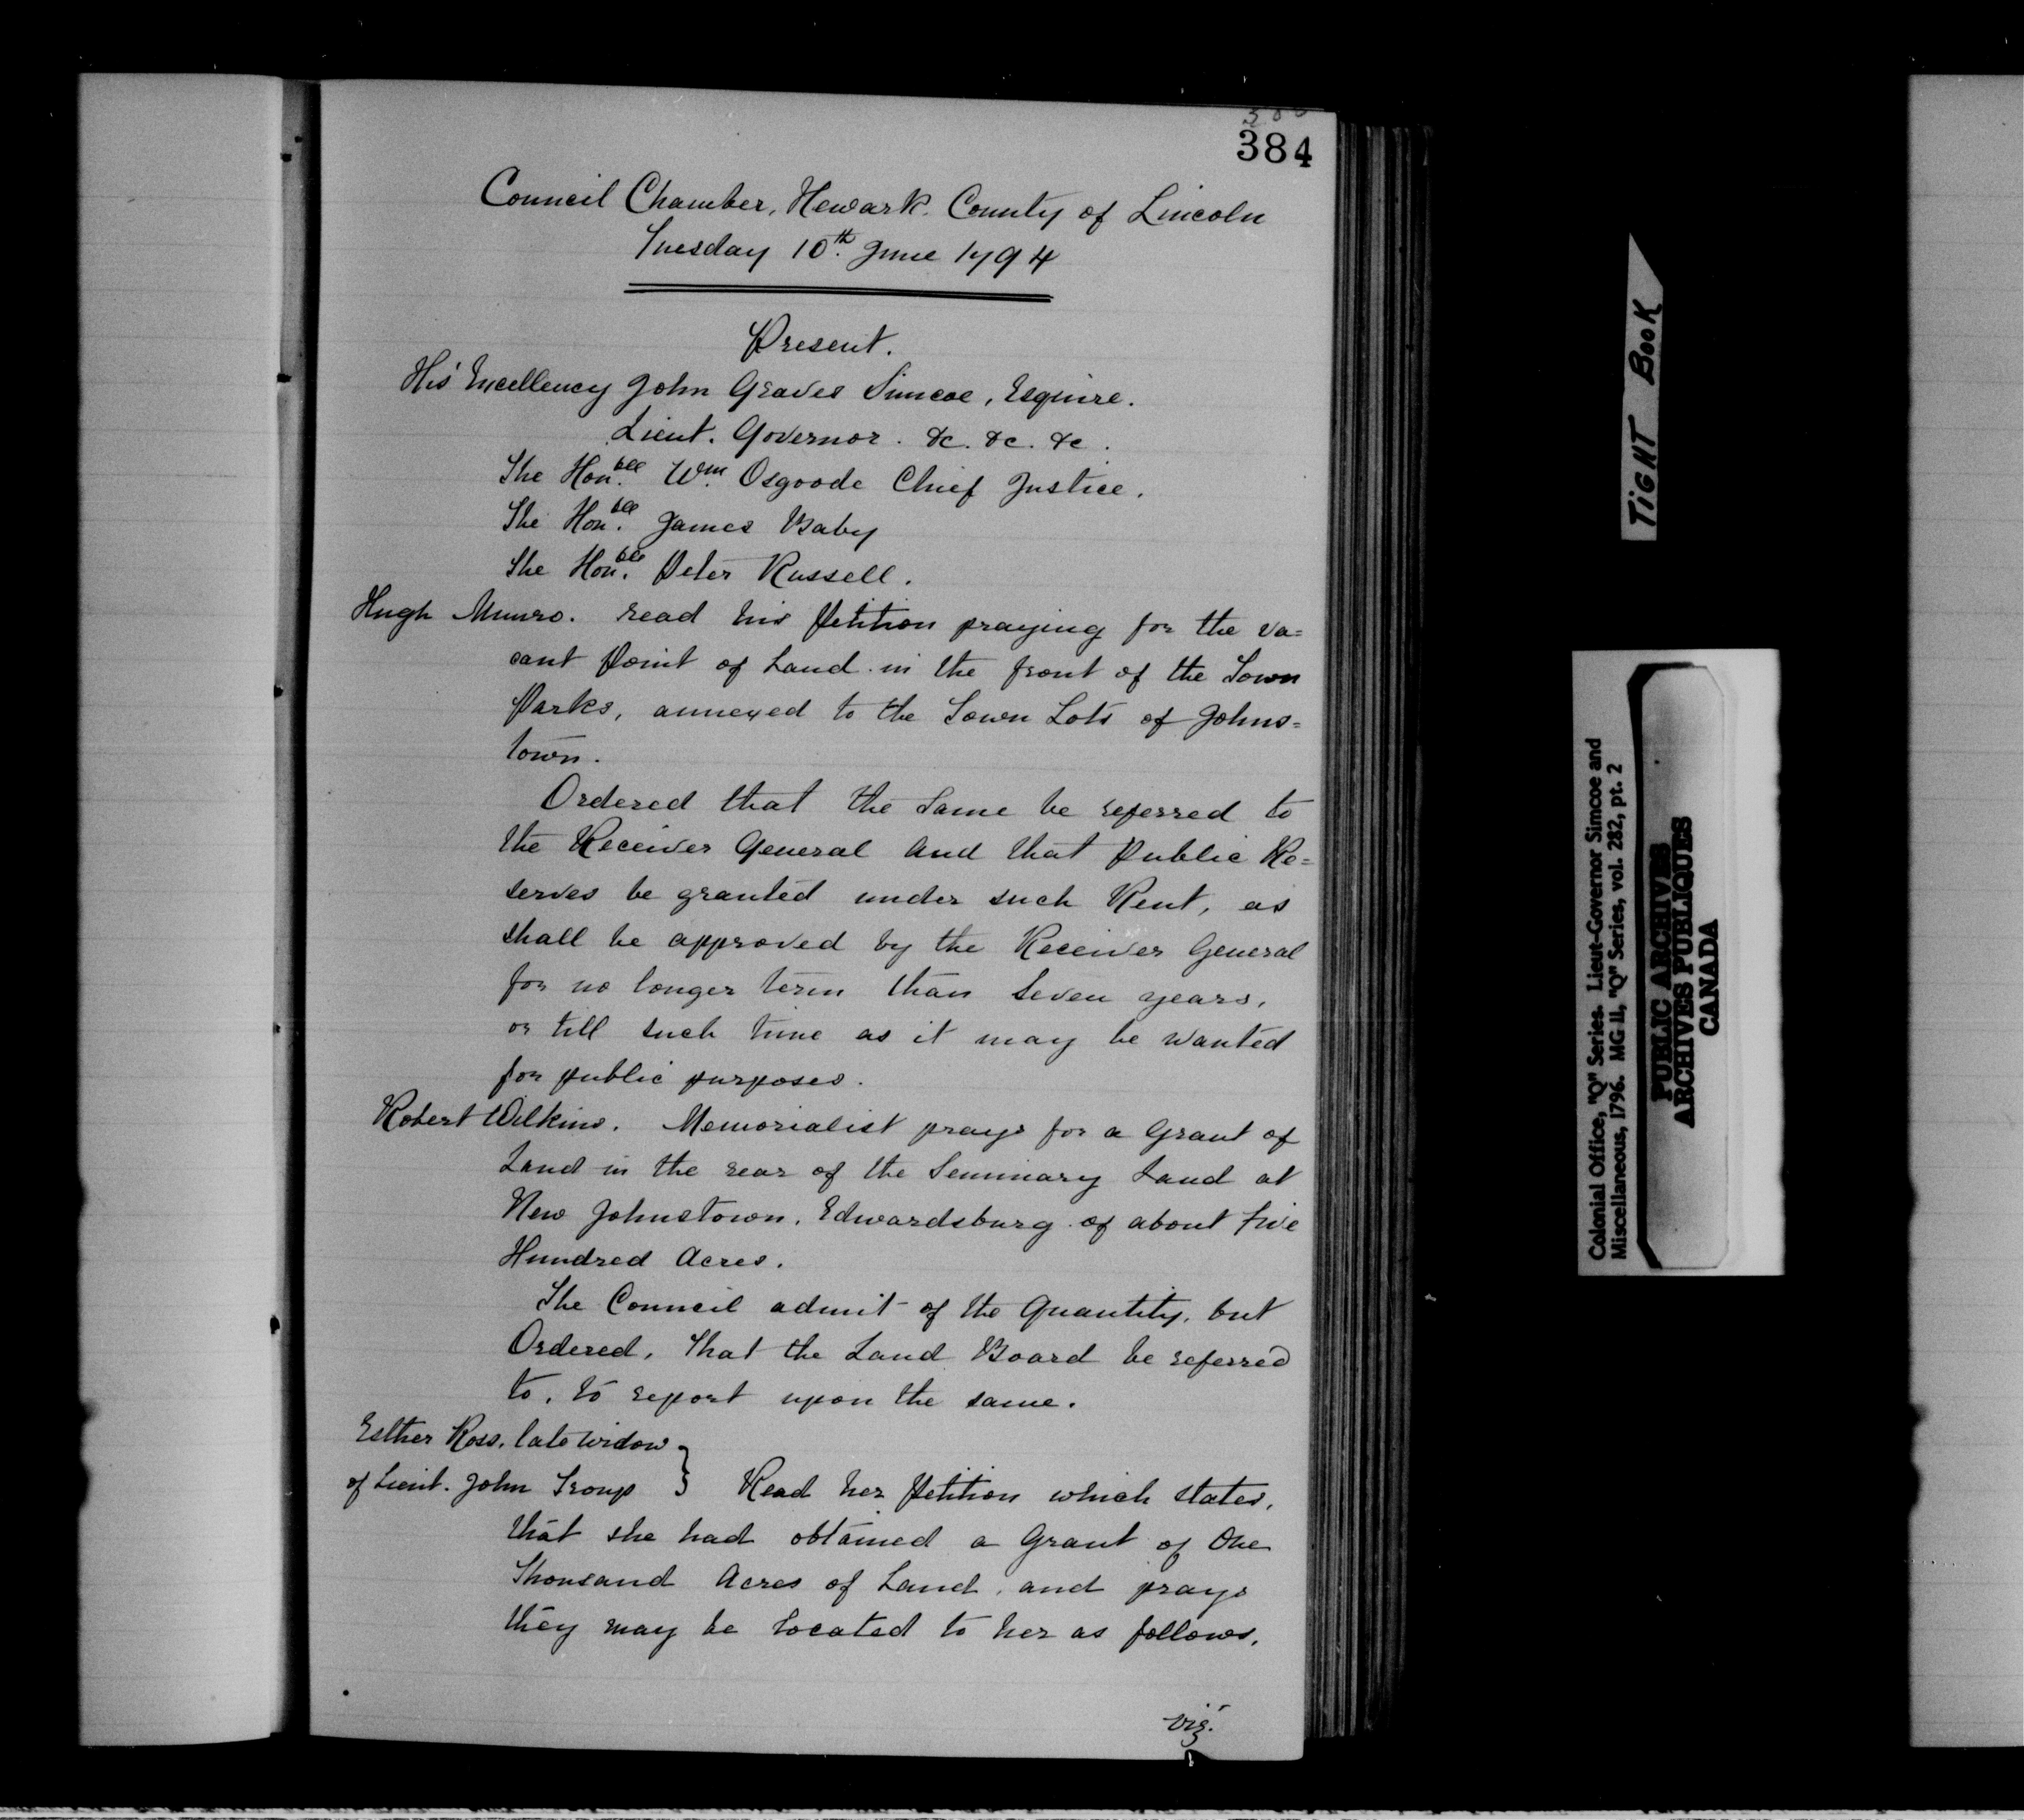 384
Council Chamber, Newark. County of Lincoln
Tuesday 10th. June 1794
Present.
His Excellency John Graves Simcoe, Esquire.
Lieut. Governor. &c. &c. &c.
The Honble. Wm. Osgoode Chief Justice.
The Honble. James Baby
The Honble. Peter Russell.
Hugh Munro. read his Petition praying for the va=
cant Point of Land in the front of the Town
Parks, annexed to the Town Lots of Johns=
town.
Ordered that the Same be referred to
the Receiver General and that Public Re=
serves be granted under such Rent, as
shall be approved by the Receiver General
for no longer term than Seven years,
or till such time as it may be wanted
for public purposes.
Robert Wilkins. Memorialist prays for a Grant of
Land in the rear of the Seminary Land at
New Johnstown, Edwardsburg of about five
Hundred Acres.
The Council admit of the Quantity, but
Ordered, That the Land Board be referred
to, to report upon the same.
Esther Ross, late widow
of Lieut. John Troup } Read her Petition which states,
that she had obtained a Grant of One
Thousand Acres of Land, and prays
they may be located to her as follows,
viz.
TIGHT BOOK
Colonial Office, "Q" Series. Lieut-Governor Simcoe and
Miscellaneous, 1796. MG 11, "Q" Series, vol. 282, pt. 2
PUBLIC ARCHIVES
ARCHIVES PUBLIQUES
CANADA